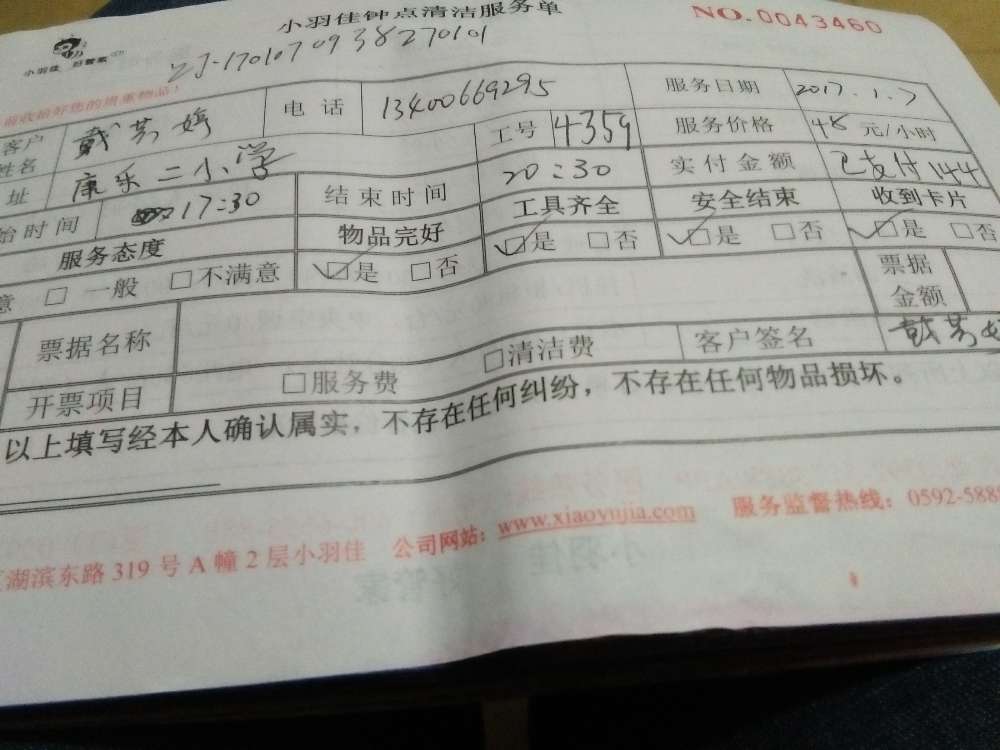 小羽佳钟点清洁服务单
NO.0043460
小羽佳 好管家
ZJ-1701070938270101
请收拾好您的贵重物品！
客户姓名 戴芸婷 电话 13400669295 服务日期 2017.1.7
址 康乐二小学 工号 4359 服务价格 48 元/小时
始时间 17:30 结束时间 20:30 实付金额 已支付144
服务态度 物品完好 工具齐全 安全结束 收到卡片
意 □ 一般 □不满意 ☑是 □否 ☑是 □否 ☑是 □否 ☑是 □否
票据名称 票据金额
开票项目 □服务费 □清洁费 客户签名 戴芸婷
以上填写经本人确认属实，不存在任何纠纷，不存在任何物品损坏。
湖滨东路 319 号 A 幢 2 层小羽佳 公司网站：www.xiaoyujia.com 服务监督热线：0592-588